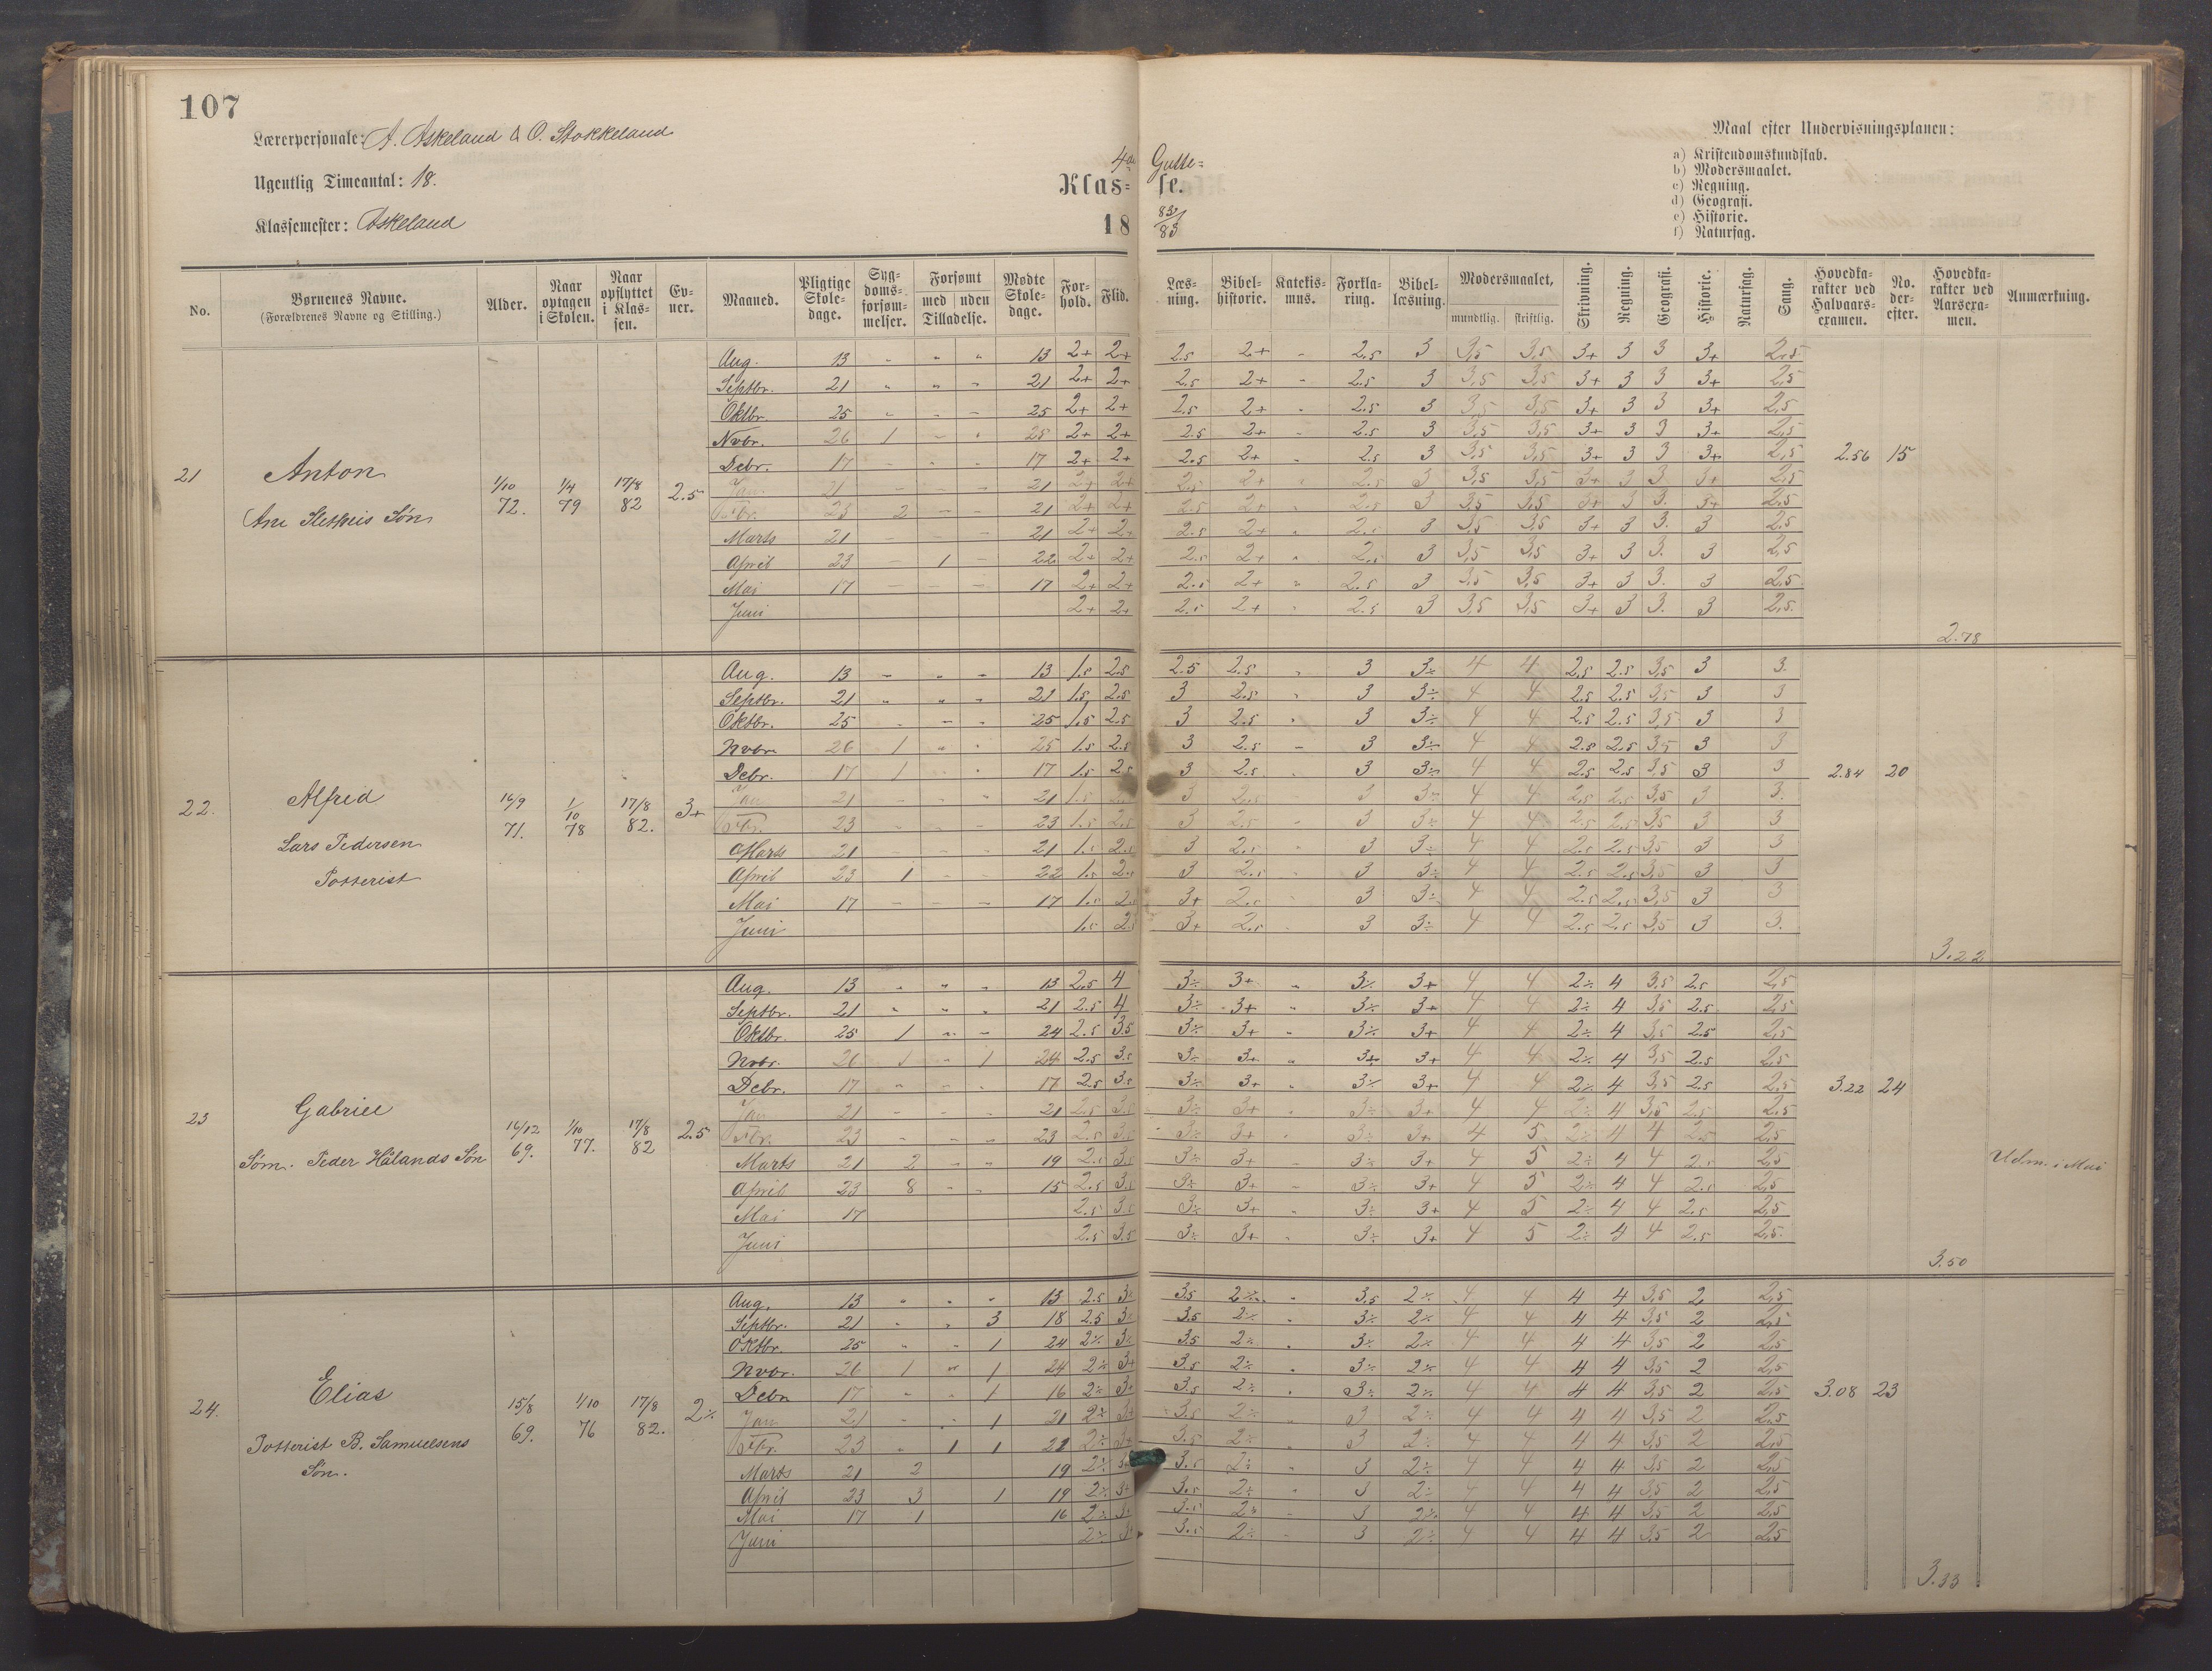 107
Lærerpersonale: A. Askeland & O. Stokkeland
Ugentlig Timeantal: 18.
Klassemester: Askeland
4de Gutte-
Klas- se.
18 82/83
Maal efter Undervisningsplanen:
a) Kristendomskundskab.
b) Modersmaalet.
c) Regning.
d) Geografi.
e) Historie.
f) Naturfag.
No. | Børnenes Navne. (Forældrenes Navne og Stilling.) | Alder. | Naar optagen i Skolen. | Naar opflyttet i Klassen. | Evner. | Maaned. | Pligtige Skoledage. | Sygdomsforsømmelser. | Forsømt med uden Tilladelse. | Mødte Skoledage. | Forhold. | Flid. | Læsning. | Bibelhistorie. | Katekismus. | Forklaring. | Bibellæsning. | Modersmaalet, mundtlig. skriftlig. | Skrivning. | Regning. | Geografi. | Historie. | Naturfag. | Sang. | Hovedkarakter ved Halvaarsexamen. | No. derefter. | Hovedkarakter ved Aarsexamen. | Anmærkning.
21 Anton
1/10 72. 1/4 79 17/8 82 2.5
Aug. 13 " " " 13 2+ 2+ 2.5 2+ " 2.5 3 3,5 3,5 3+ 3 3 3+ 2,5
Septbr. 21 " " " 21 2+ 2+ 2.5 2+ " 2.5 3 3,5 3,5 3+ 3 3 3+ 2,5
Oktbr. 25 " - - 25 2+ 2+ 2.5 2+ " 2.5 3 3,5 3,5 3+ 3 3 3+ 2,5
Nvbr. 26 1 - " 25 2+ 2+ 2.5 2+ " 2.5 3 3,5 3,5 3+ 3 3 3+ 2,5
Debr. 17 - " " 17 2+ 2+ 2.5 2+ " 2.5 3 3,5 3,5 3+ 3 3 3+ 2,5
2.56 15
Jan. 21 - - - 21 2+ 2+ 2.5 2+ " 2.5 3 3,5 3,5 3+ 3 3 3+ 2,5
Fbr. 23 2 - - 21 2+ 2+ 2.5 2+ " 2.5 3 3,5 3,5 3+ 3 3. 3+ 2,5
Marts 21 - - - 21 2+ 2+ 2.5 2+ " 2.5 3 3,5 3,5 3+ 3 3. 3 2,5
April 23 - 1 - 22 2+ 2+ 2.5 2+ " 2.5 3 3,5 3,5 3+ 3 3. 3 2,5
Mai 17 - - - 17 2+ 2+ 2.5 2+ " 2.5 3 3,5 3,5 3+ 3 3. 3 2,5
Juni 2+ 2+ 2.5 2+ " 2.5 3 3,5 3,5 3+ 3 3. 3 2,5.
2.78
22. Alfred
Lars Pedersen
16/9 71. 1/10 78 17/8 82. 3+
Aug. 13 - " - 13 1.5 2.5 2.5 2.5 " 3 3÷ 4 4 2.5 2.5 3,5 3 3.
Septbr. 21 " " " 21 1.5 2.5 3 2.5 " 3 3÷ 4 4 2.5 2.5 3,5 3 3
Oktbr. 25 - - - 25 1.5 2.5 3 2.5 " 3 3÷ 4 4 2.5 2.5 3,5 3 3
Nvbr. 26 1 " " 25 1.5 2.5 3 2.5 - 3 3÷ 4 4 2.5 2.5 3,5 3 3
Debr. 17 1 - " 17 1.5 2.5 3 2.5 " 3 3÷ 4 4 2.5 2.5 3,5 3 3
2.84 20
Jan. 21 - - " 21 1.5 3 2.5 " 3 3÷ 4 4 2.5 2.5 3,5 3 3.
Fbr. 23 - - - 23 1.5 2.5 3 2.5 " 3 3÷ 4 4 2.5 2.5 3,5 3 3
Marts 21 - - - 21 1.5 2.5 3 2.5 " 3 3÷ 4 4 2.5 2.5 3,5 3 3
April 23 1 - - 22 1.5 2.5 3 2.5 " 3 3÷ 4 4 2.5 2.5 3,5 3 3
Mai 17 - - - 17 1.5 2.5 3+ 2.5 " 3 3÷ 4 4 2.5 2.5 3,5 3 3
Juni 1.5 2.5 3+ 2.5 " 3 3÷ 4 4 2.5 2.5 3,5 3 3.
3.22
23 Gabriel
Søm. Peder Hålands Søn
16/12 69. 1/10 77. 17/8 82 2.5
Aug. 13 " " " 13 2.5 4 3÷ 3+ " 3÷ 3+ 4 4 2÷ 4 3,5 2.5 2,5
Septbr. 21 " " " 21 2.5 4 3÷ 3+ " 3÷ 3+ 4 4 2÷ 4 3,5 2.5 2,5
Oktbr. 25 1 " - 24 2.5 3.5 3÷ 3+ " 3÷ 3+ 4 4 2÷ 4 3,5 2.5 2,5
Nvbr. 26 1 - 1 24 2.5 3.5 3÷ 3+ " 3÷ 3+ 4 4 2÷ 4 3,5 2.5 2,5
Debr. 17 " - " 17 2.5 3.5 3÷ 3+ " 3÷ 3+ 4 4 2÷ 4 3,5 2.5 2,5
3.22 24
Jan. 21 - - - 21 2.5 3.5 3÷ 3+ " 3÷ 3+ 4 4 2÷ 4 3,5 2.5 2,5
Fbr. 23 - - - 23 2.5 3.5 3÷ 3+ " 3÷ 3+ 4 5 2÷ 4 4 2.5 2,5
Marts 21 2 - - 19 2.5 3.5 3÷ 3+ - 3÷ 3+ 4 5 2÷ 4 4 2.5 2,5
Udm. i Mai
April 23 8 - - 15 2.5 3.5 3÷ 3+ - 3÷ 3+ 4 5 2÷ 4 4 2.5 2,5
Mai 17 2.5 3.5 3÷ 3+ " 3÷ 3+ 4 5 2÷ 4 4 2.5 2,5
Juni 2.5 3.5 3÷ 3+ " 3÷ 3+ 4 5 2÷ 4 4 2.5 2,5.
3.50
24. Elias
B. Samuelsens
Søn.
15/8 69. 1/10 76 17/8 82. 2÷
Aug. 13 " " " 13 2.5 3÷ 3.5 2÷ " 3.5 2÷ 4 4 4 4 3,5 2 2,5
Septbr. 21 " " 3 18 2.5 3÷ 3.5 2÷ " 3÷ 2÷ 4 4 4 4 3,5 2 2,5
Oktbr. 25 " " 1 24 2÷ 3÷ 3.5 2÷ " 3÷ 2÷ 4 4 4 4 3,5 2 2,5
Nvbr. 26 1 " 1 24 2÷ 3+ 3.5 2÷ " 3÷ 2÷ 4 4 4 4 3,5 2 2,5
Debr. 17 " " 1 16 2÷ 3+ 3.5 2÷ " 3÷ 2÷ 4 4 4 4 3,5 2 2,5
3.08 23
Jan. 21 - - 1 21 2÷ 3+ 3.5 2÷ " 3 2÷ 4 4 4 4 3,5 2 2,5
Fbr. 23 " 1 1 21 2÷ 3+ 3.5 2÷ " 3 2÷ 4 4 4 4 3,5 2 2,5
Marts 21 2 19 2÷ 3+ 3.5 2÷ " 3 2÷ 4 4 4 4 3,5 2 2,5
April 23 3 1 19 2÷ 3+ 3.5 2÷ " 3 2÷ 4 4 4 4 3,5 2 2,5
Mai 17 1 16 2÷ 3+ 3.5 2÷ " 3 2÷ 4 4 4 4 3,5 2 2,5
Juni 2÷ 3+ 3.5 2÷ " 3 2÷ 4 4 4 4 3,5 2 2,5
3.33